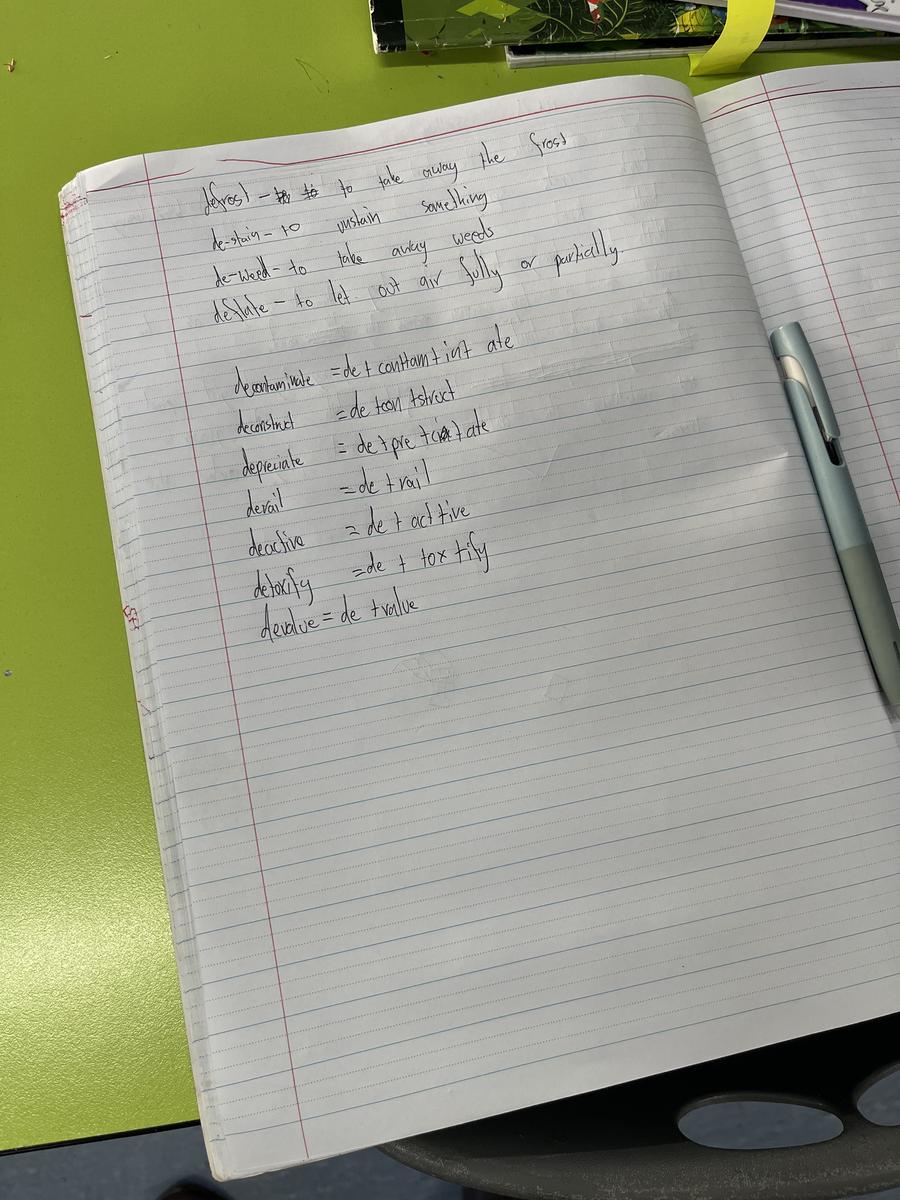 defrost - to to to take away the frost
de-stain - to unstain something
de-weed - to take away weeds
deflate - to let out air fully or partially
decontaminate = de + con + tam + int ate
deconstruct = de + con + struct
depreciate = de + pre + ci + ate
derail = de + rail
deactive = de + act + ive
detoxify = de + tox + ify
devalue = de + value